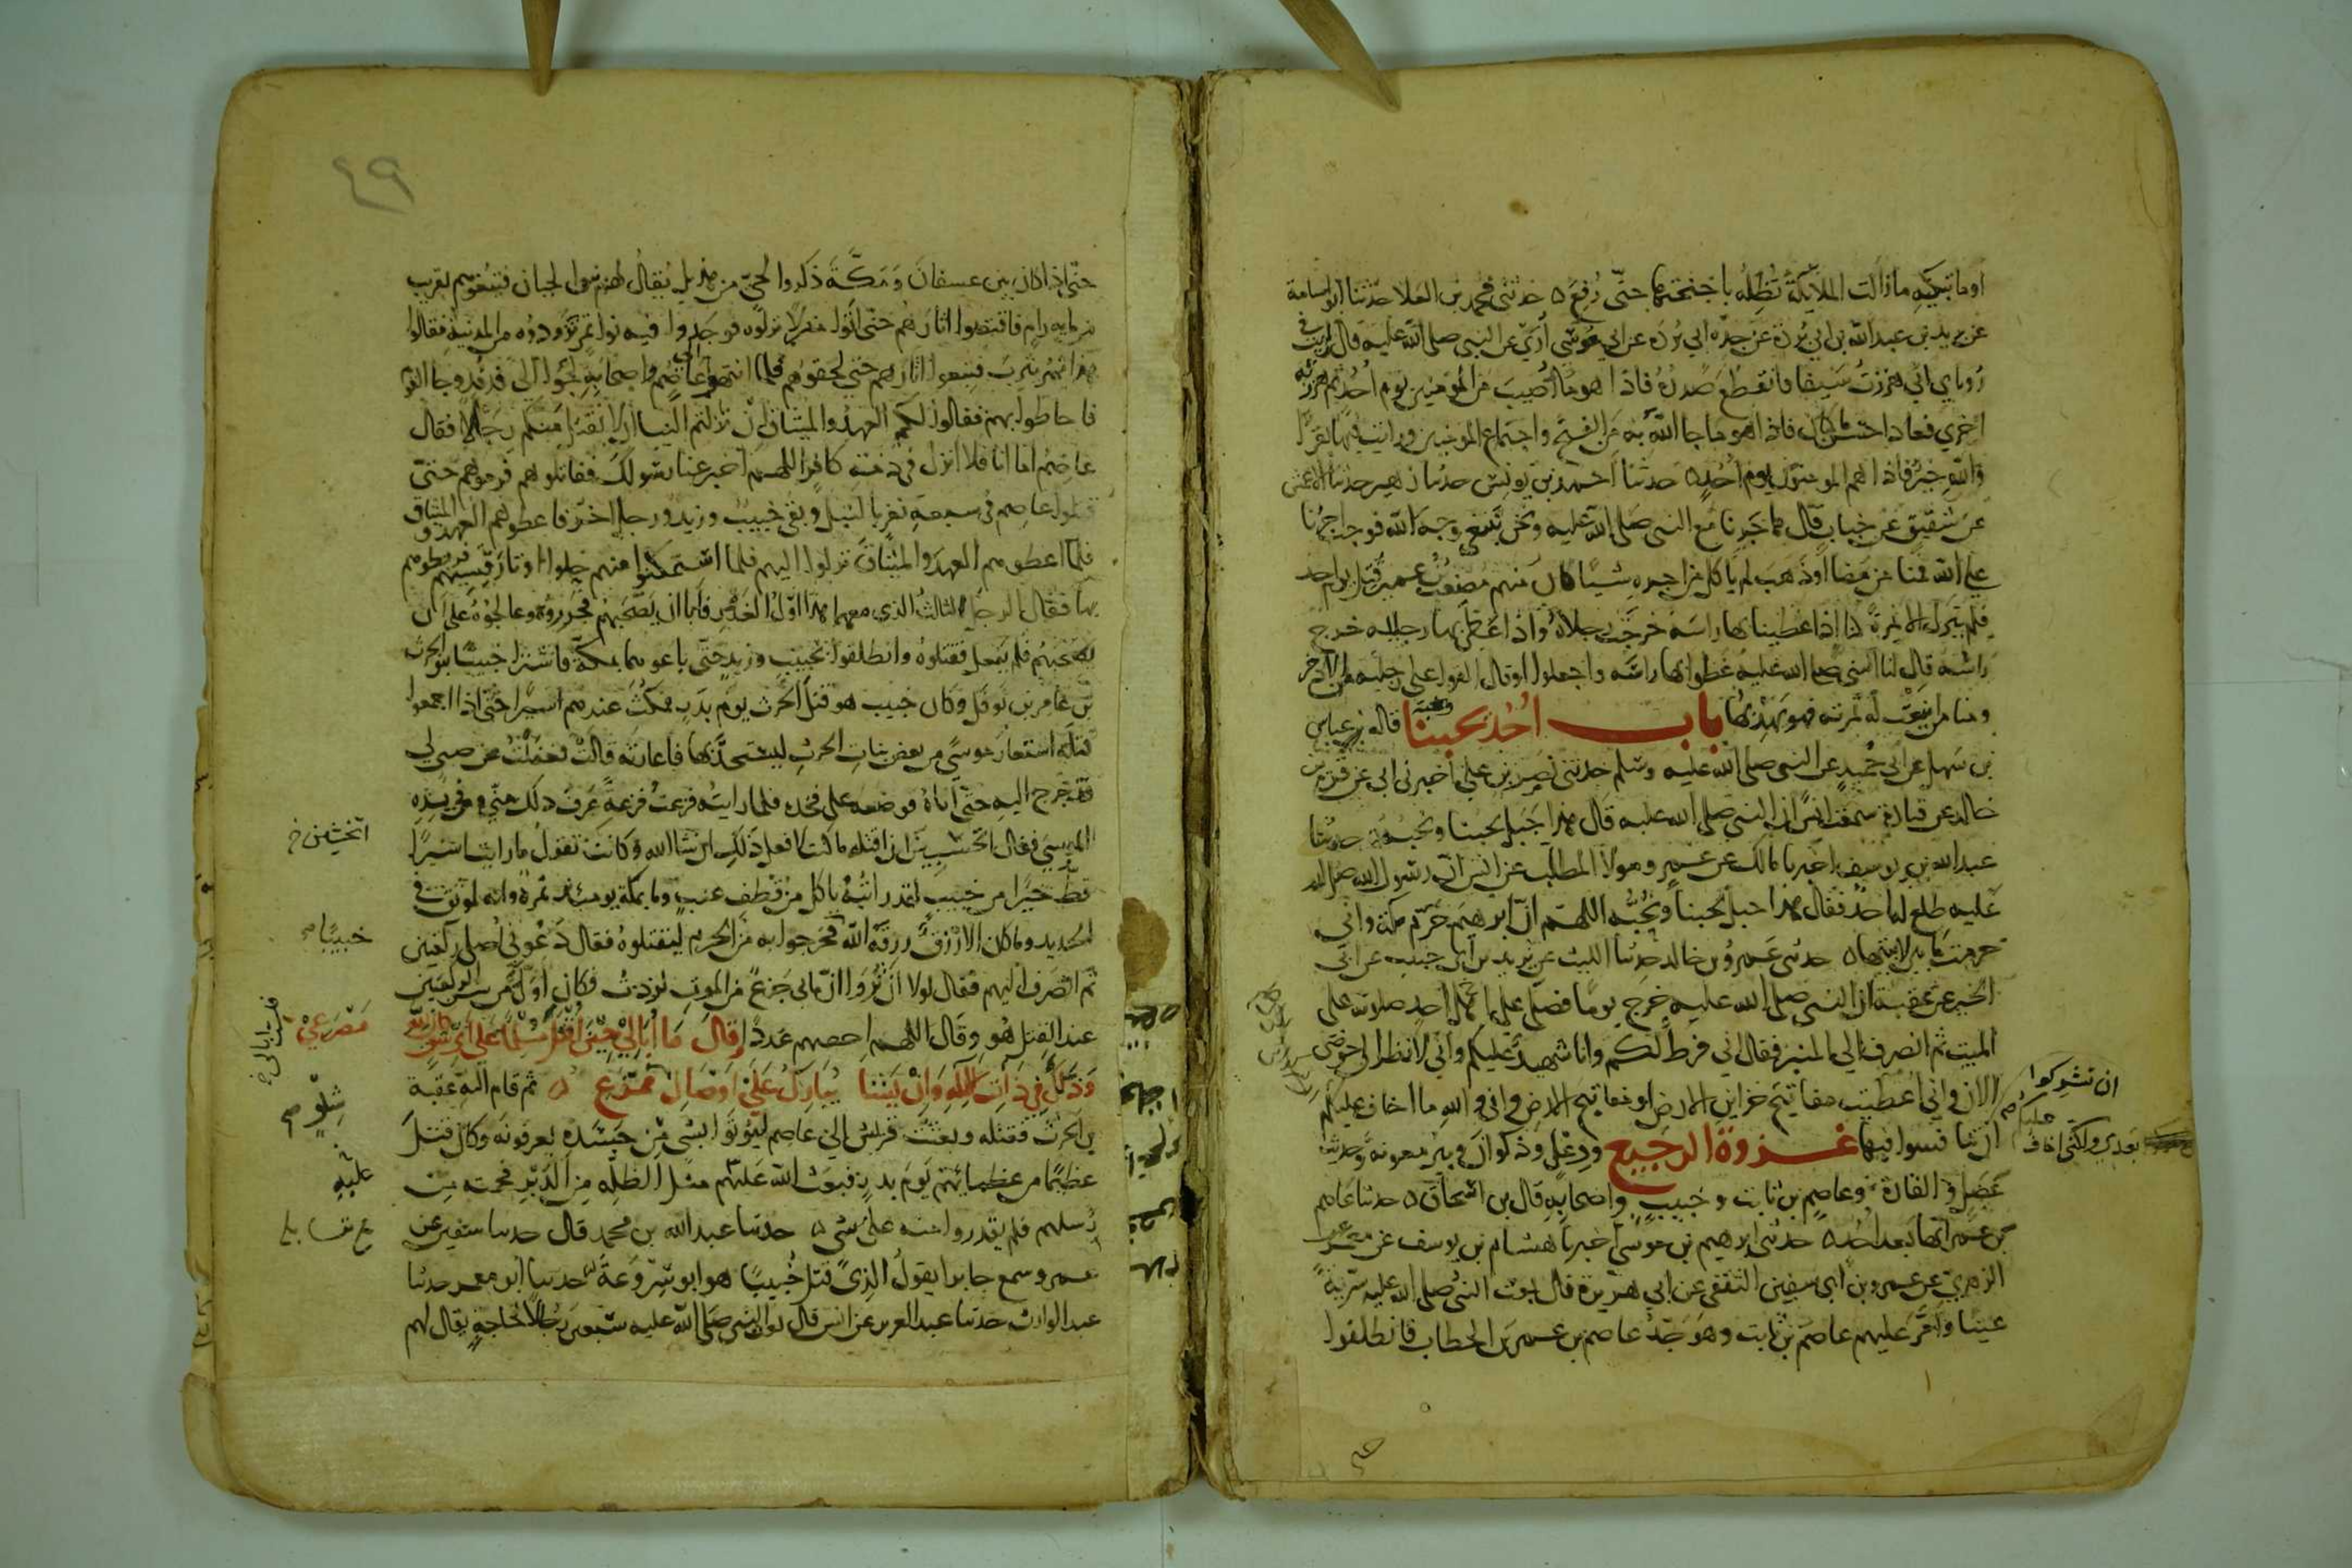 او ما تبكيه ما زالت الملائكة تظله باجنحتها حتى رفع ه حدثني محمد بن العلا حدثنا ابو اسامة
عن بريد بن عبد الله بن ابي بردة عن جده ابي بردة عن ابي موسى أرى عن النبي صلى الله عليه قال رايت في
روياي اني هززت سيفا فانقطع صدره فاذا هو ما اصيب من المومنين يوم احد ثم هززته
اخرى فعاد احسن ما كان فاذا هو ما جا الله به من الفتح واجتماع المومنين ورايت فيها بقرا
والله خير فاذا هم المومنون يوم احد ه حدثنا احمد بن يونس حدثنا زهير حدثنا الاعمش
عن شقيق عن خباب قال هاجرنا مع النبي صلى الله عليه ونحن نبتغي وجه الله فوجب اجرنا
على الله فمنا من مضا او ذهب لم ياكل من اجره شيا كان منهم مصعب بن عمير قتل يوم احد
فلم يترك الا نمرة كنا اذا غطينا بها راسه خرجت رجلاه واذا غطي بها رجليه خرج
راسه قال لنا النبي صلى الله عليه غطوا بها راسه واجعلوا او قال القوا على رجليه من الاذخر
ومنا من اينعت له ثمرته فهو يهدبها باب احد يحبنا ونحبه قاله عباس
بن سهل عن ابي حميد عن النبي صلى الله عليه وسلم حدثني نصر بن علي اخبرني ابي عن قرة بن
خالد عن قتادة سمعت انسا ان النبي صلى الله عليه قال هذا جبل يحبنا ونحبه ه حدثنا
عبد الله بن يوسف اخبرنا مالك عن عمرو مولا المطلب عن انس ان رسول الله صلى الله
عليه طلع له احد فقال هذا جبل يحبنا ونحبه اللهم ان ابرهيم حرم مكة واني
حرمت ما بين لابتيها ه حدثني عمرو بن خالد حدثنا الليث عن يزيد بن ابي حبيب عن ابي
الخير عن عقبة ان النبي صلى الله عليه خرج يوما فصلى على اهل احد صلوته على
الميت ثم انصرف الى المنبر فقال اني فرط لكم وانا شهيد عليكم واني لانظر الى حوضي
الان واني اعطيت مفاتيح خزاين الارض او مفاتيح الارض واني والله ما اخاف عليكم
ان تشركوا
بعدي ولكني اخاف عليكم
ان تنافسوا فيها غزوة الرجيع ورعل وذكوان وبير معونة وحديث
عضل والقارة وعاصم بن ثابت وخبيب واصحابه قال بن اسحاق ه حدثنا عاصم
بن عمر انها بعد احد ه حدثني ابرهيم بن موسى اخبرنا هشام بن يوسف عن معمر عن
الزهري عن عمرو بن ابي سفين الثقفي عن ابي هريرة قال بعث النبي صلى الله عليه سرية
عينا وامر عليهم عاصم بن ثابت وهو جد عاصم بن عمر بن الخطاب فانطلقوا
٤٩
حتى اذا كان بين عسفان ومكة ذكروا لحي من هذيل يقال لهم بنوا لحيان فتبعوهم بقريب
من مايه رام فاقتصوا اثارهم حتى اتوا منزلا نزلوه فوجدوا فيه نوا تمر تزودوه من المدينة فقالوا
هذا تمر يثرب فتبعوا اثارهم حتى لحقوهم فلما انتهى عاصم واصحابه لجئوا الى فدفد وجا القوم
فاحاطوا بهم فقالوا لكم العهد والميثاق ان نزلتم الينا ان لا نقتل منكم رجلا فقال
عاصم اما انا فلا انزل في ذمة كافر اللهم اخبر عنا رسولك فقاتلوهم فرموهم حتى
قتلوا عاصم في سبعة نفر بالنبل وبقي خبيب وزيد ورجل اخر فاعطوهم العهد والميثاق
فلما اعطوهم العهد والميثاق نزلوا اليهم فلما استمكنوا منهم حلوا اوتار قسيهم فربطوهم
بها فقال الرجل الثالث الذي معهما هذا اول الغدر فابا ان يصحبهم فجرروه وعالجوه على ان
يصحبهم فلم يفعل فقتلوه وانطلقوا بخبيب وزيد حتى باعوهما بمكة فاشترا خبيبا بنو الحرث
بن عامر بن نوفل وكان خبيب هو قتل الحرث يوم بدر فمكث عندهم اسيرا حتى اذا اجمعوا
قتله استعار موسى من بعض بنات الحرث ليستحد بها فاعارته قالت فغفلت عن صبي لي
فدرج اليه حتى اتاه فوضعه على فخذه فلما رايته فزعت فزعة عرف ذلك مني وفي يده
الموسى فقال اتحسبين ان اقتله ما كنت لافعل ذلك ان شا الله وكانت تقول ما رايت اسيرا
اتخشين خ
قط خيرا من خبيب لقد رايته ياكل من قطف عنب وما بمكة يومئذ ثمرة وانه لموثق في
الحديد وما كان الا رزق رزقه الله فخرجوا به من الحرم ليقتلوه فقال دعوني اصلي ركعتين
خبيبا
ثم انصرف اليهم فقال لولا ان تروا ان ما بي جزع من الموت لزدت فكان اول من سن الركعتين
عند القتل هو وقال اللهم احصهم عددا وقال ما ابالي حين اقتل مسلما على اي شق كان لله
مصرعي
وذلك في ذات الاله وان يشا يبارك على اوصال ممزع ه ثم قام اليه عقبة
شلو
بن الحرث فقتله وبعثت قريش الى عاصم ليوتوا بشي من جسده يعرفونه وكان قتل
عظيما من عظمائهم يوم بدر فبعث الله عليهم مثل الظلة من الدبر فحمته من
عليه
رسلهم فلم يقدروا منه على شي ه حدثنا عبد الله بن محمد قال حدثنا سفين عن
عمرو سمع جابرا يقول الذي قتل خبيبا هو ابو سروعة حدثنا ابو معمر حدثنا
عبد الوارث حدثنا عبد العزيز عن انس قال بعث النبي صلى الله عليه سبعين رجلا لحاجة يقال لهم